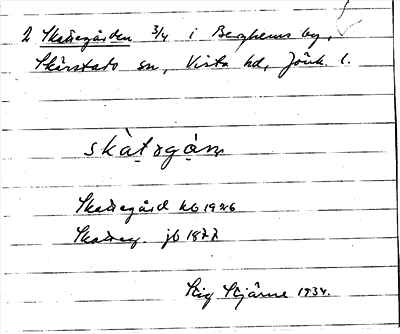 2 Skattegården 3/4 i Berghems by,
Skärstads sn, Vista hd, Jönk. l.
Skattegård kb 1926
Skatteg. jb 1877
Stig Stjärne 1934.